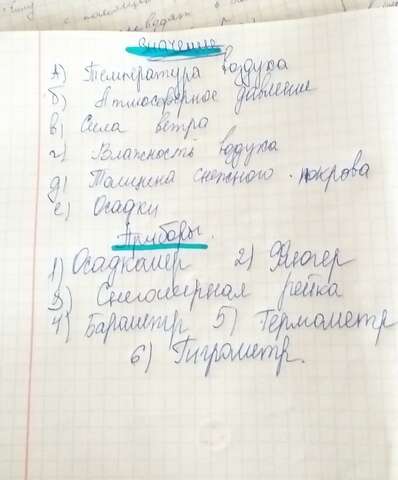 Значение
А) Температура воздуха
б) Атмосферное давление
в) Сила ветра
г) Влажность водуха
д) Толщина снежного покрова
е) Осадки
Приборы.
1) Осадкомер 2) Флюгер
3) Снегомерная рейка
4) Бараметр 5) Термометр
6) Гигрометр.